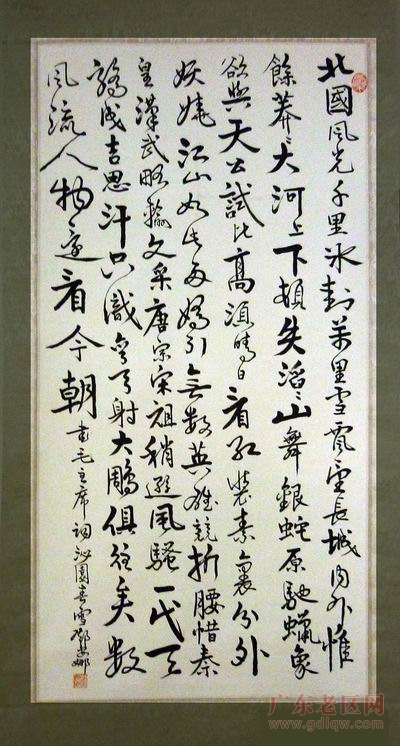 北國風光千里冰封萬里雪飄望長城內外惟
餘莽々大河上下頓失滔々山舞銀蛇原馳蠟象
欲與天公試比高須晴日看紅裝素裹分外
妖嬈江山如此多嬌引無數英雄競折腰惜秦
皇漢武略輸文采唐宗宋祖稍遜風騷一代天
驕成吉思汗只識彎弓射大鵰俱往矣數
風流人物還看今朝
書毛主席詞沁園春雪
广东老区网
www.gdlqw.com